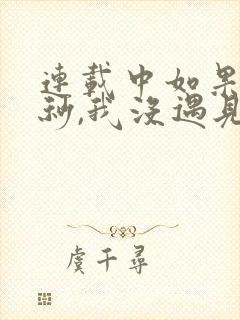 連載中如果
秒,我沒遇見
虞千尋